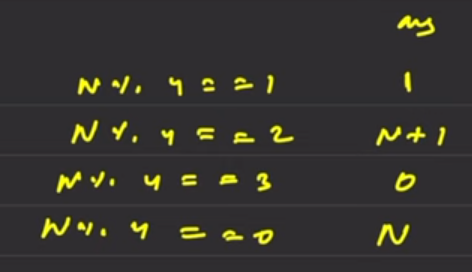 ans
N % 4 == 1 1
N % 4 == 2 N+1
N % 4 == 3 0
N % 4 == 0 N